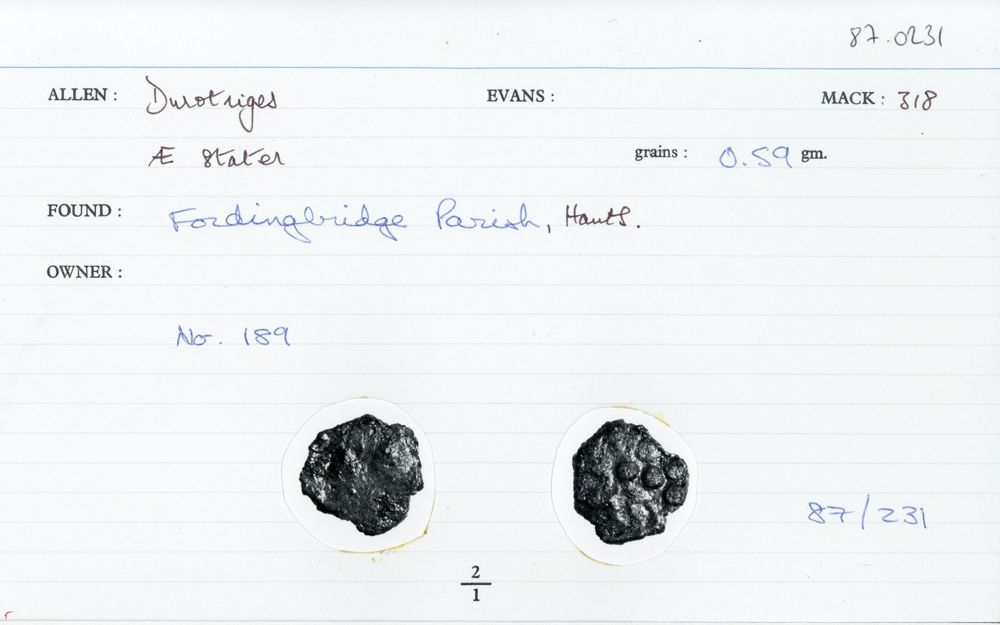 87.0231
ALLEN : Durotriges EVANS : MACK : 318
Æ Stater grains : 0.59 gm.
FOUND : Fordingbridge Parish, Hants.
OWNER :
No. 189
87/231
2
1